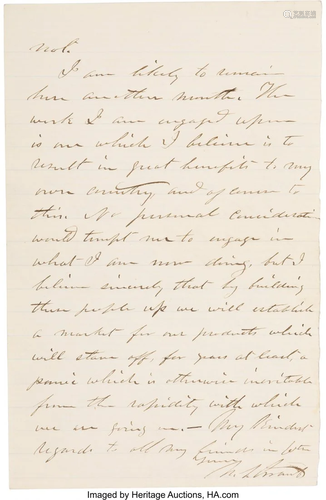 not.
I am likely to remain
here another month. The
work I am engaged upon
is one which I believe is to
result in great benefits to my
own country, and of course to
this. No personal consideration
would tempt me to engage in
what I am now doing, but I
believe sincerely that by building
these people up we will establish
a market for our products which
will stave off, for years at least, a
panic which is otherwise inevitable
from the rapidity with which
we are going on. — My kindest
regards to all my friends in
Yours
U. S. Grant
Imaged by Heritage Auctions, HA.com